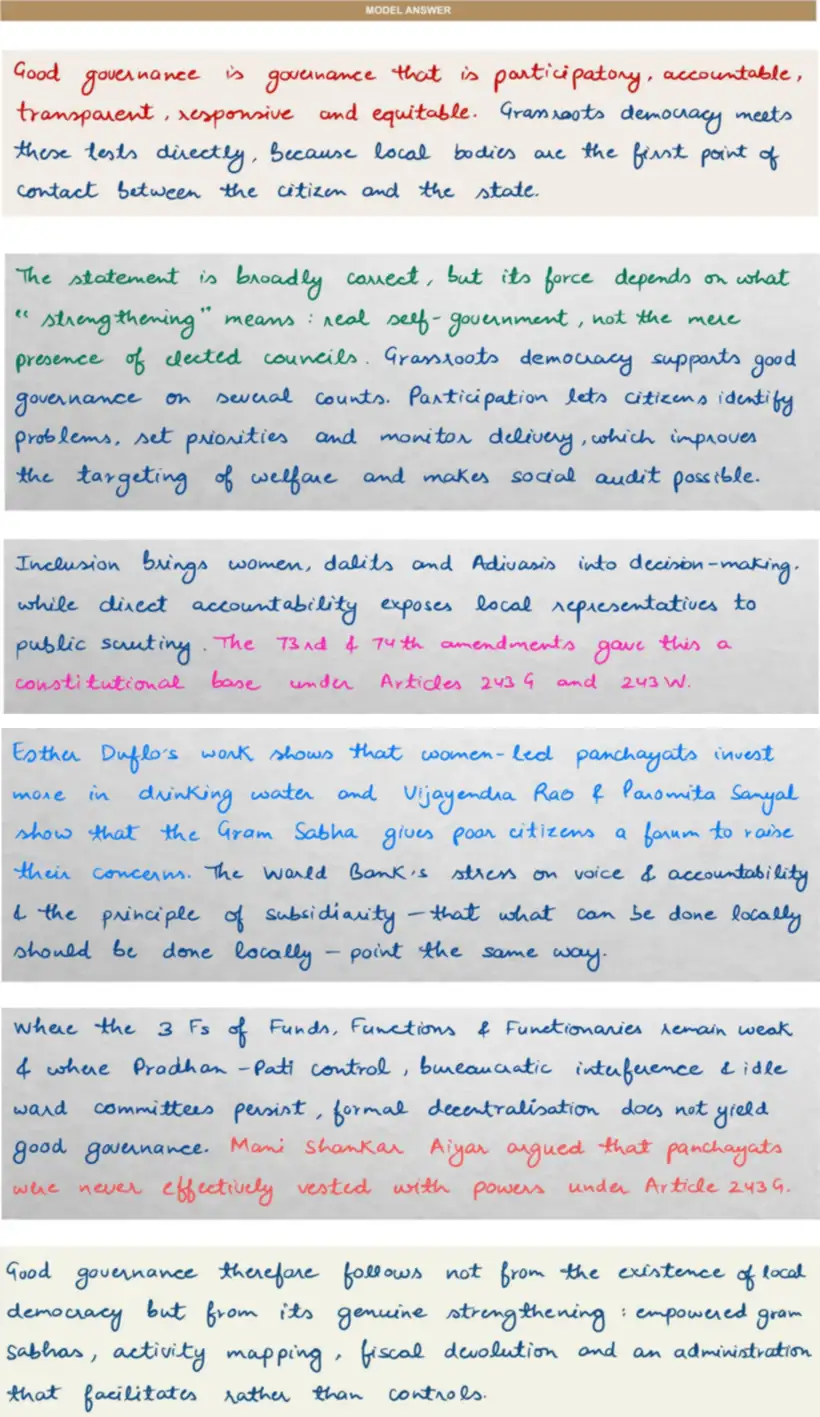 MODEL ANSWER
Good governance is governance that is participatory, accountable,
transparent, responsive and equitable. Grassroots democracy meets
these tests directly, because local bodies are the first point of
contact between the citizen and the state.
The statement is broadly correct, but its force depends on what
"strengthening" means: real self-government, not the mere
presence of elected councils. Grassroots democracy supports good
governance on several counts. Participation lets citizens identify
problems, set priorities and monitor delivery, which improves
the targeting of welfare and makes social audit possible.
Inclusion brings women, dalits and Adivasis into decision-making.
while direct accountability exposes local representatives to
public scrutiny. The 73rd & 74th amendments gave this a
constitutional base under Articles 243G and 243W.
Esther Duflo's work shows that women-led panchayats invest
more in drinking water and Vijayendra Rao & Paromita Sanyal
show that the Gram Sabha gives poor citizens a forum to raise
their concerns. The World Bank's stress on voice & accountability
& the principle of subsidiarity – that what can be done locally
should be done locally – point the same way.
Where the 3 Fs of Funds, Functions & Functionaries remain weak
& where Pradhan-Pati control, bureaucratic interference & idle
ward committees persist, formal decentralisation does not yield
good governance. Mani Shankar Aiyar argued that panchayats
were never effectively vested with powers under Article 243G.
Good governance therefore follows not from the existence of local
democracy but from its genuine strengthening: empowered gram
sabhas, activity mapping, fiscal devolution and an administration
that facilitates rather than controls.